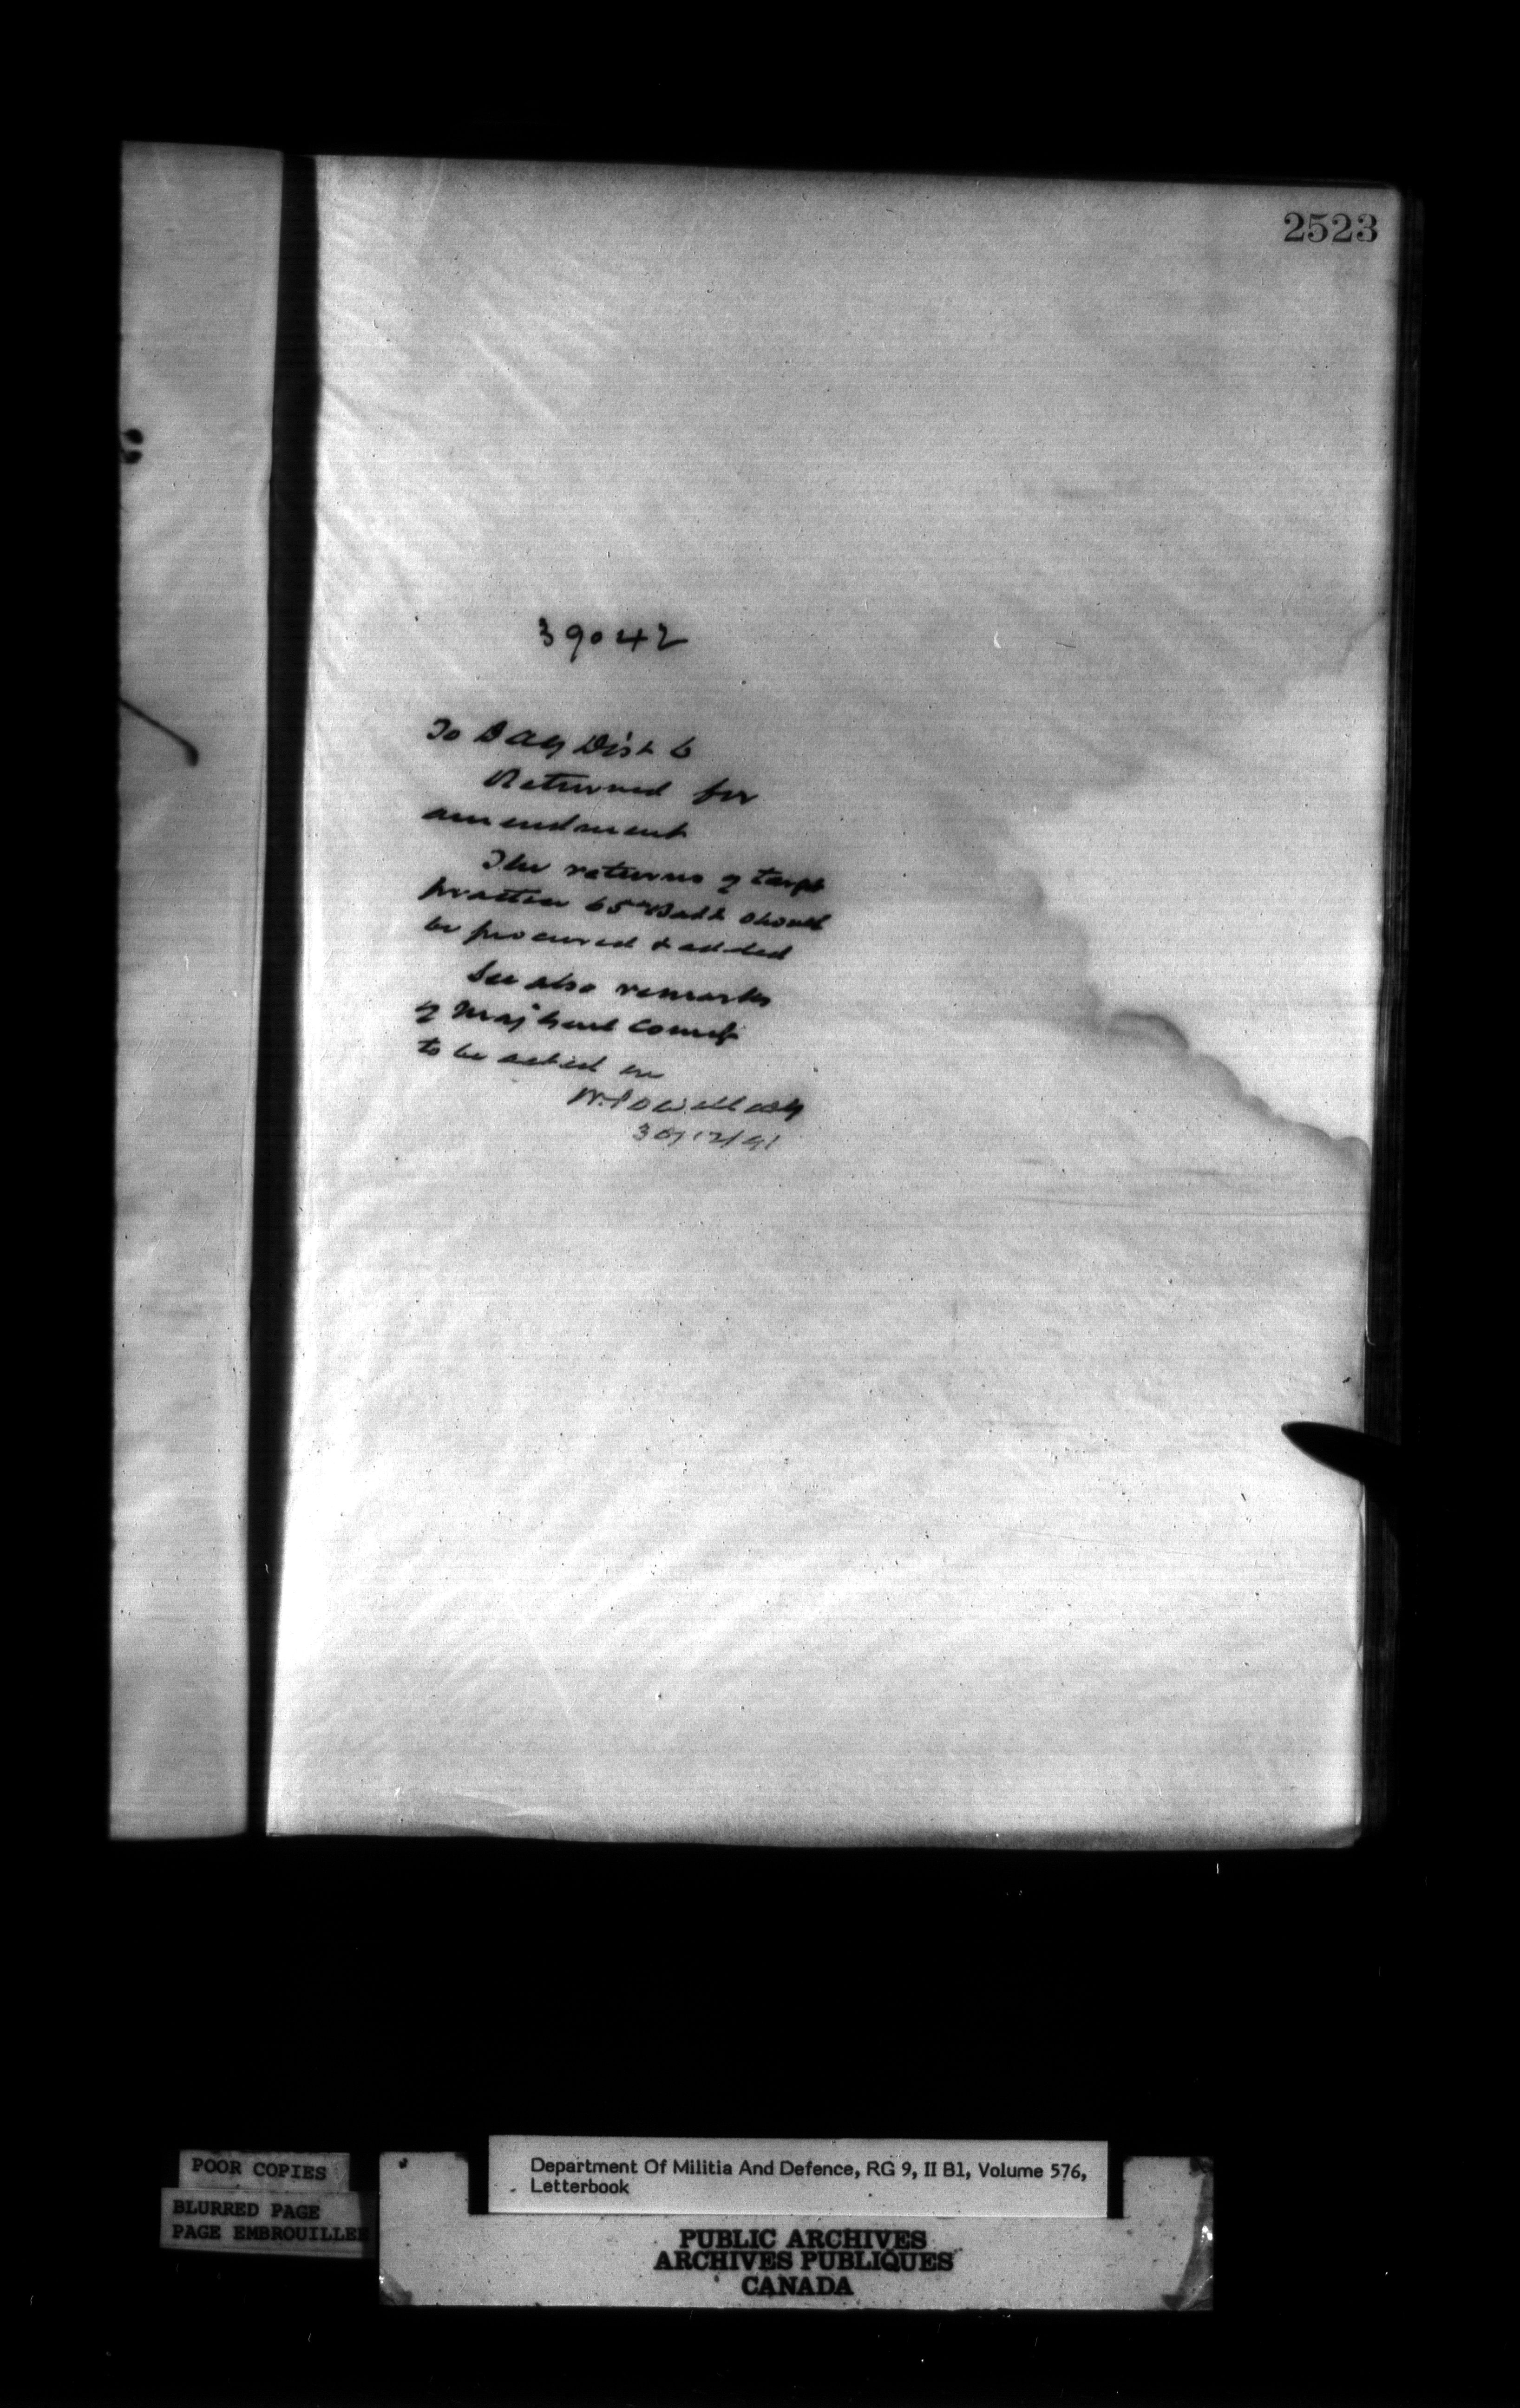 2523
39042
To DAG Dist 6
Returned for
amendment
The returns of target
practice 65th Batt should
be procured & added
See also remarks
of Maj Genl Comg
to be acted on
W. Powell AG
30/12/91
POOR COPIES
BLURRED PAGE
PAGE EMBROUILLEE
Department Of Militia And Defence, RG 9, II B1, Volume 576,
Letterbook
PUBLIC ARCHIVES
ARCHIVES PUBLIQUES
CANADA